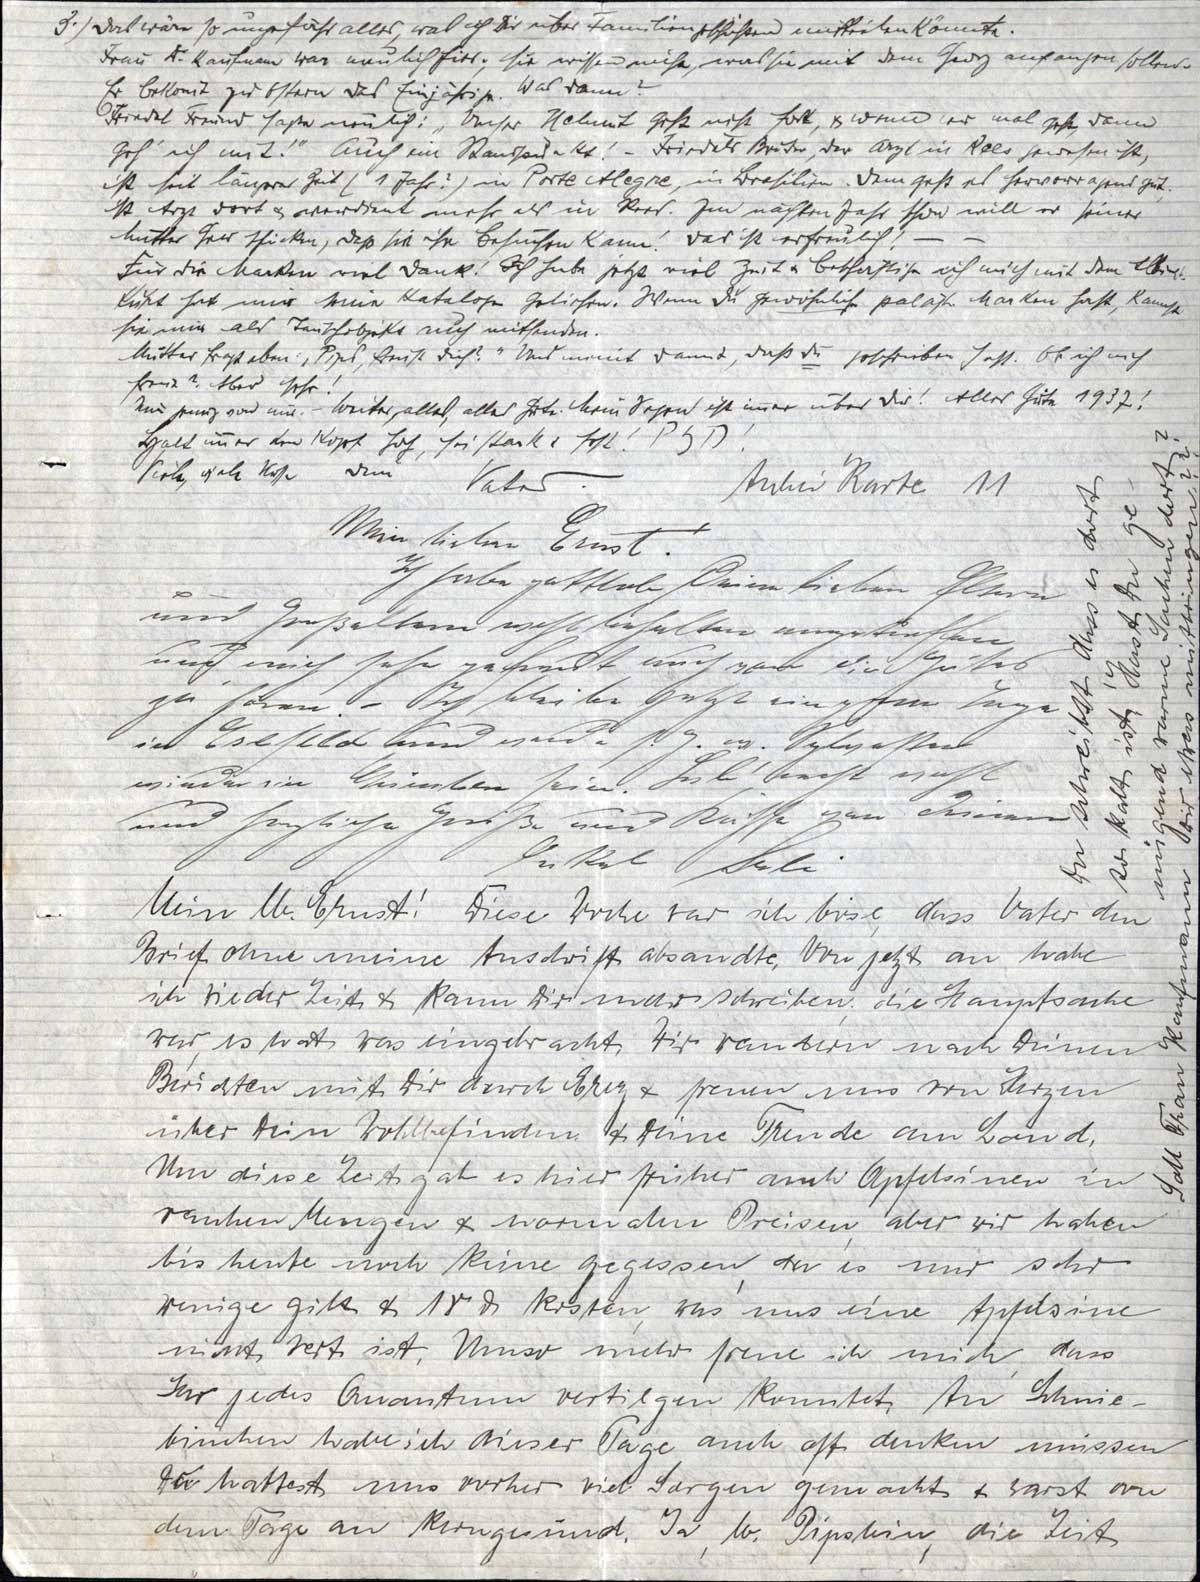 3.) Das wäre so ungefähr alles, was ich Dir über Familien mitteilen könnte.
Frau Dr. Kaufmann war neulich hier, sie wissen nicht, was sie mit dem Georg anfangen sollen.
Er bekommt zu Ostern das Einjährige. Was dann?
Friedel Freund sagte neulich: "Unser Helmut geht nicht fort, & wenn er mal geht, dann
geh' ich mit!" Auch ein Standpunkt! – Friedels Bruder, der Arzt in Rees gewesen ist,
ist seit längerer Zeit (1 Jahr?) in Porto Alegre, in Brasilien. Dem geht es hervorragend gut,
ist Arzt dort & verdient mehr als in Rees. Im nächsten Jahr schon will er seiner
Mutter Geld schicken, daß sie ihn besuchen kann! Das ist erfreulich! — —
Für die Marken viel Dank! Ich habe jetzt viel Zeit & beschäftige ich mich mit dem
Kurt hat mir seine Kataloge geliehen. Wenn Du gewöhnliche paläst. Marken hast, kannst
sie mir als Tauschobjekte auch mitsenden.
Mutter fragt eben: "Pips, freust Dich?" Und meint damit, daß du geschrieben hast. Ob ich mich
freue? Aber sehr!
Nun genug von mir. – Weiter alles, alles Gute. Mein Segen ist immer über Dir! Alles Gute 1937!
Halt immer den Kopf hoch, sei stark & fest!
Viele, viele Küsse Dein Vater. Karte 11
Mein lieber Ernst!
Ich habe gottlob Deine lieben Eltern
und Großeltern wohlbehalten angetroffen
und mich sehr gefreut auch von Dir Gutes
zu hören. – Ich bleibe jetzt einige Tage
in und werde s. G. w. Sylvester
wieder in sein. Leb' recht wohl
und herzliche Grüße und Küsse von Deinem
Onkel Sali
Mein lb. Ernst! Diese Woche war ich böse, dass Vater den
Brief ohne meine Anschrift absandte. Von jetzt an habe
ich wieder Zeit & kann Dir mehr schreiben, die Hauptsache
war, es hat was eingebracht. Wir wandern nach Deinen
Berichten mit Dir durch Erez & freuen uns von Herzen
über Dein Wohlbefinden & Deine Freude am Land.
Um diese Zeit gab es hier früher auch Apfelsinen in
rauhen Mengen & normalen Preisen, aber wir haben
bis heute noch keine gegessen, da es nur sehr
wenige gibt & 18 d kosten, was uns eine Apfelsine
nicht wert ist. Umso mehr freue ich mich, dass
Ihr jedes Quantum vertilgen konntet. An Schnie-
binchen habe ich dieser Tage auch oft denken müssen
Du hattest uns vorher viel Sorgen gemacht & warst von
dem Tage an kerngesund. Ja, lb. Pipslein, die Zeit
Du schreibst dass es dort
so kalt ist, Hast Du ge-
nügend warme Sachen dort?
Soll Frau Kaufmann Dir etwas mitbringen???